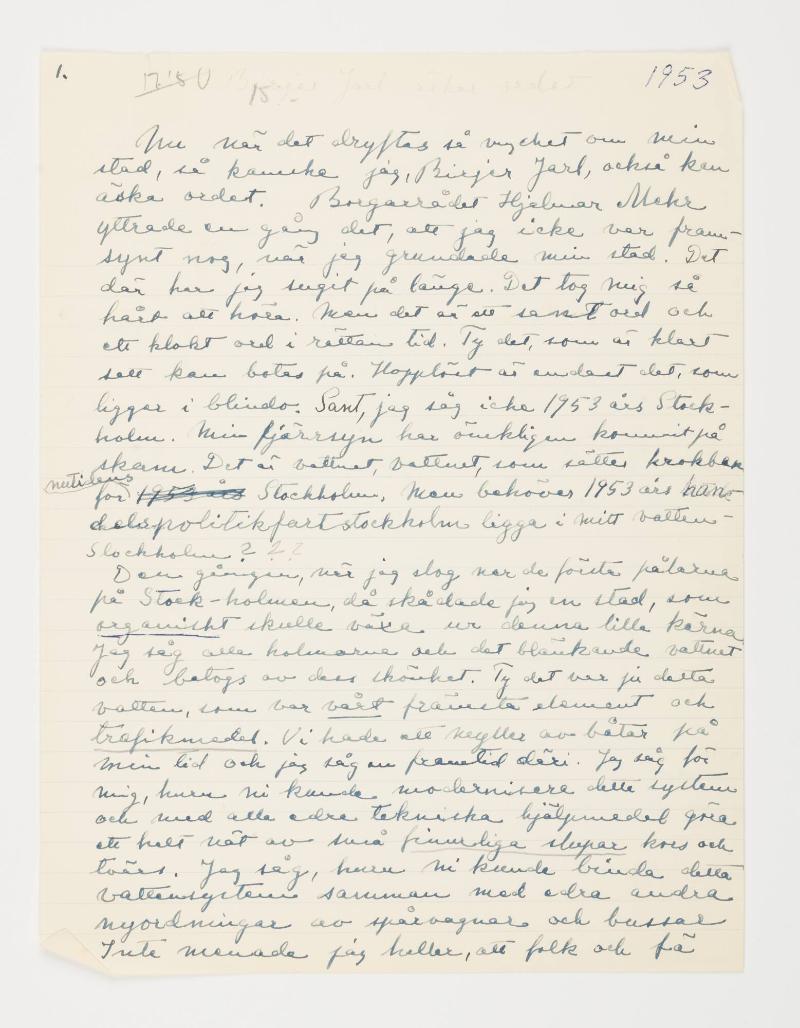 1. 1953
Nu när det dryftas så mycket om min
stad, så kanske jag, Birger Jarl, också kan
äska ordet. Borgarrådet Hjalmar Mehr
yttrade en gång det, att jag icke var fram-
synt nog, när jag grundade min stad. Det
där har jag sugit på länge. Det tog mig så
hårt att höra. Men det är ett sant ord och
ett klokt ord i rättan tid. Ty det, som är klart
sett kan botas på. Hopplöst är endast det, som
ligger i blindo. Sant, jag såg icke 1953 års Stock-
holm. Min fjärrsyn har ömkligen kommit på
skam. Det är vattnet, vattnet, som sätter krokben
nutidens
för 1953 års Stockholm. Men behöver 1953 års han-
delspolitikfartstockholm ligga i mitt vatten-
Stockholm ? ? ?
Den gången, när jag slog ner de första pålarna
på Stock-holmen, då skådade jag en stad, som
organiskt skulle växa ur denna lilla kärna
Jag såg alla holmarna och det blänkande vattnet
och betogs av dess skönhet. Ty det var ju detta
vatten, som var vårt främsta element och
trafikmedel. Vi hade ett myller av båtar på
min tid och jag såg en framtid däri. Jag såg för
mig, huru ni kunde modernisera detta system
och med alla edra tekniska hjälpmedel göra
ett helt nät av små finurliga slupar kors och
tvärs. Jag såg, huru ni kunde binda detta
vattensystem samman med edra andra
nyordningar av spårvagnar och bussar
Inte menade jag heller, att folk och fä